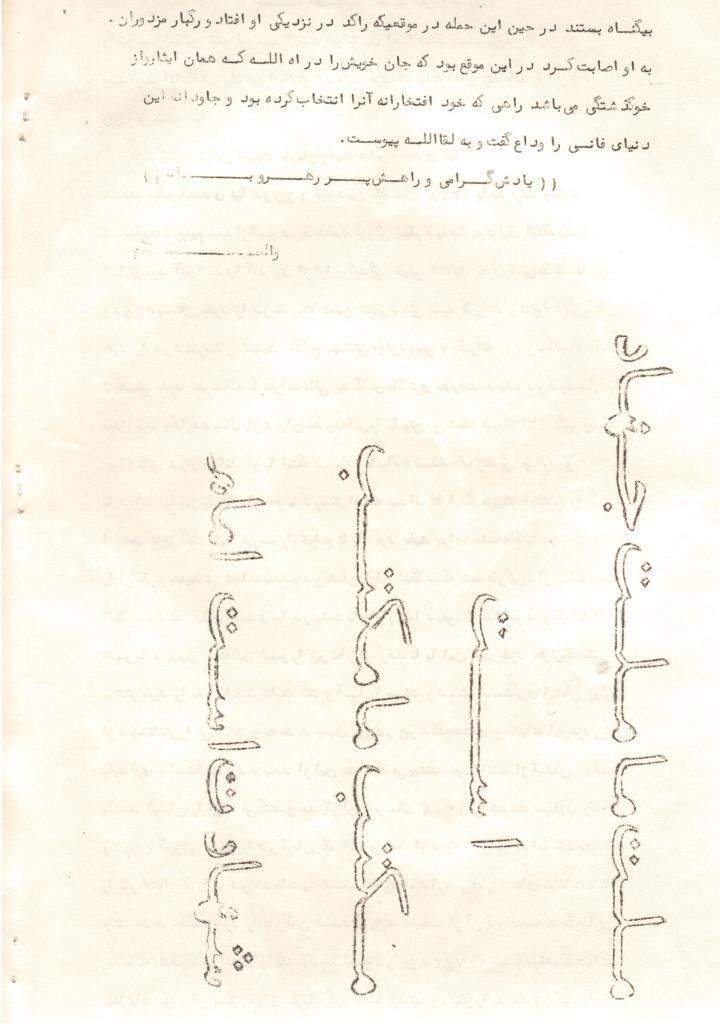 بیگناه بستند در حین این حمله در موقعیکه راکد در نزدیکی او افتاد و رگبار مزدوران .
به او اصابت کرد در این موقع بود که جان خویش را در راه الله که همان ایثار واز
خودگذشتگی می باشد راهی که خود افتخارانه آنرا انتخاب کرده بود و جاودانه این
دنیای فانی را وداع گفت و به لقاالله پیوست.
(( یادش گرامی و راهش پر رهرو باد ))
والسلام
ملت ما ملت جهاد
است
مکتب ما مکتب
شهادت است امام